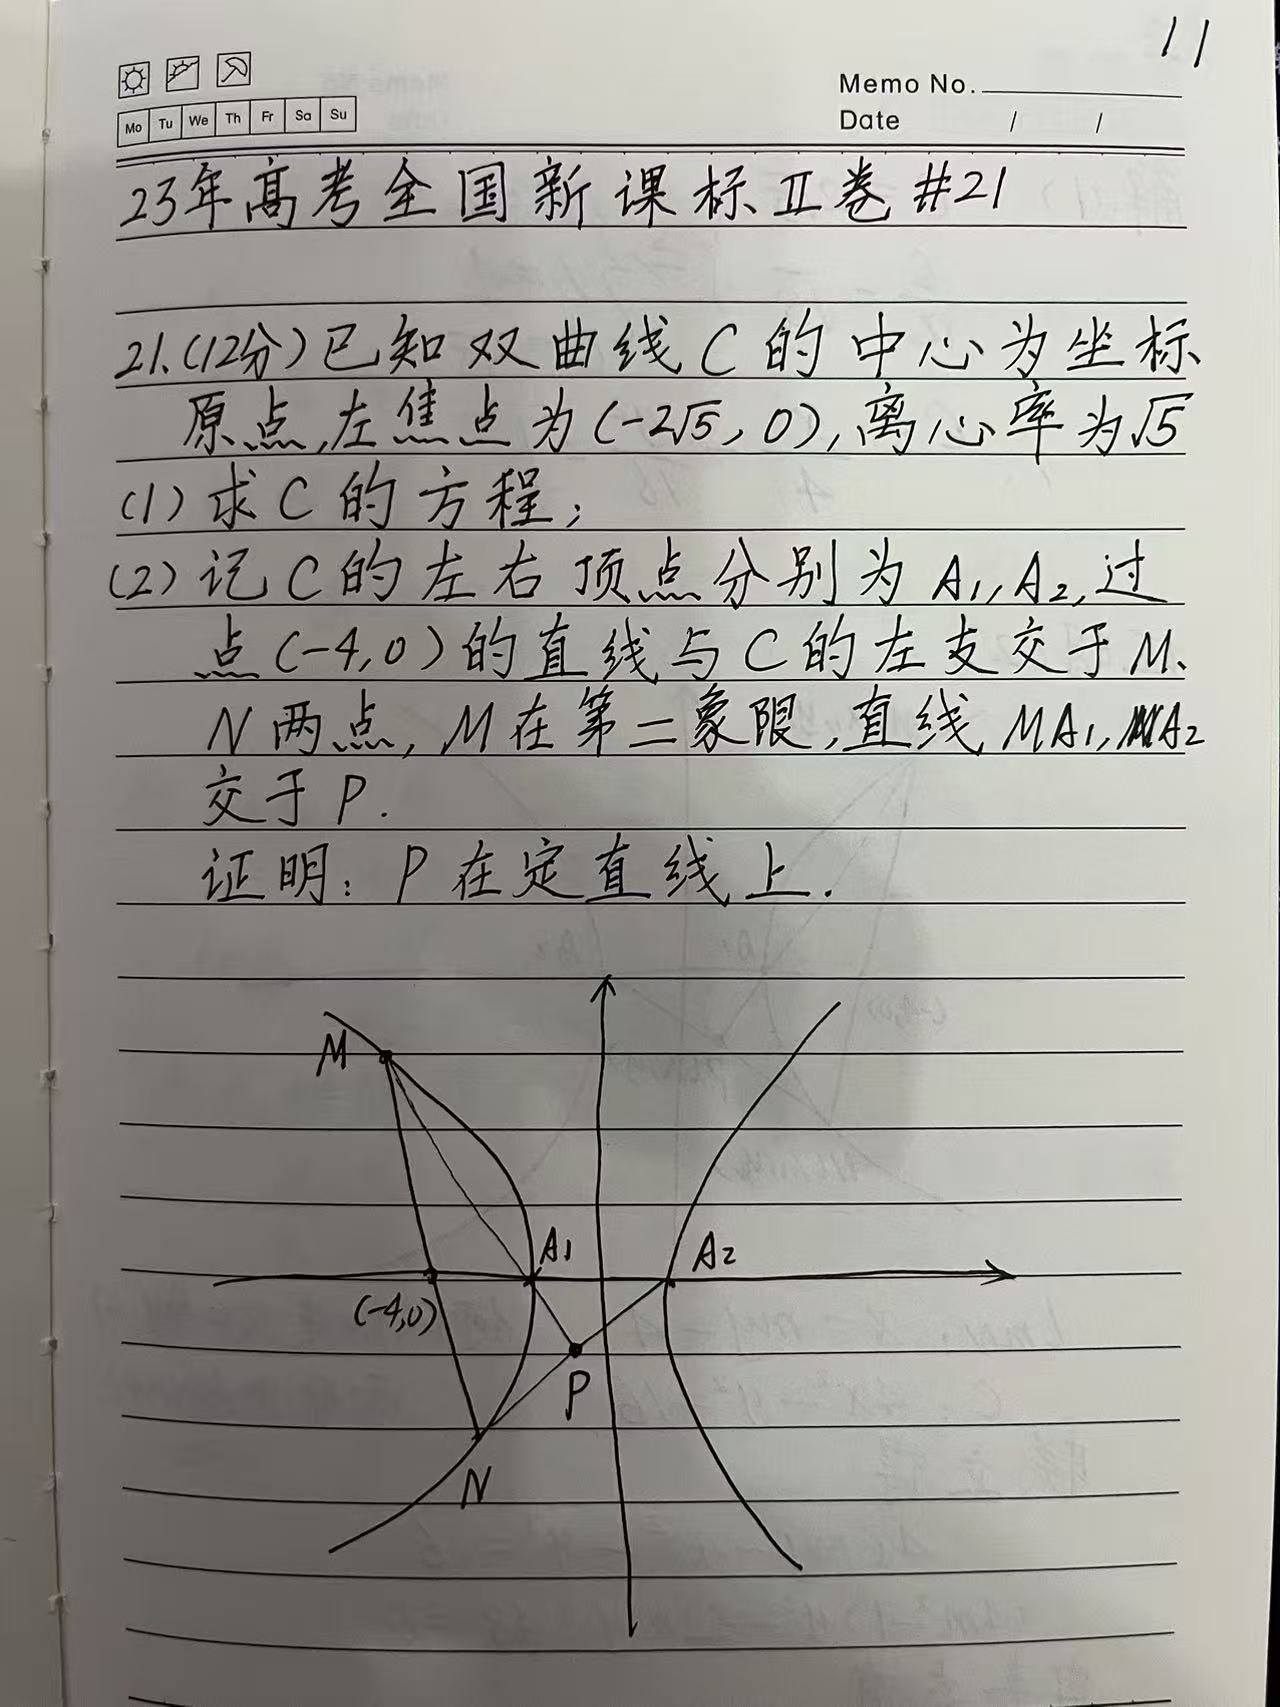 11
Memo No.
Mo Tu We Th Fr Sa Su
Date / /
23年高考全国新课标Ⅱ卷 #21
21.(12分)已知双曲线C的中心为坐标
原点,左焦点为(-2√5,0),离心率为√5
(1)求C的方程;
(2)记C的左右顶点分别为A₁,A₂,过
点(-4,0)的直线与C的左支交于M、
N两点,M在第二象限,直线MA₁,NA₂
交于P.
证明:P在定直线上.
M
A₁
A₂
(-4,0)
P
N